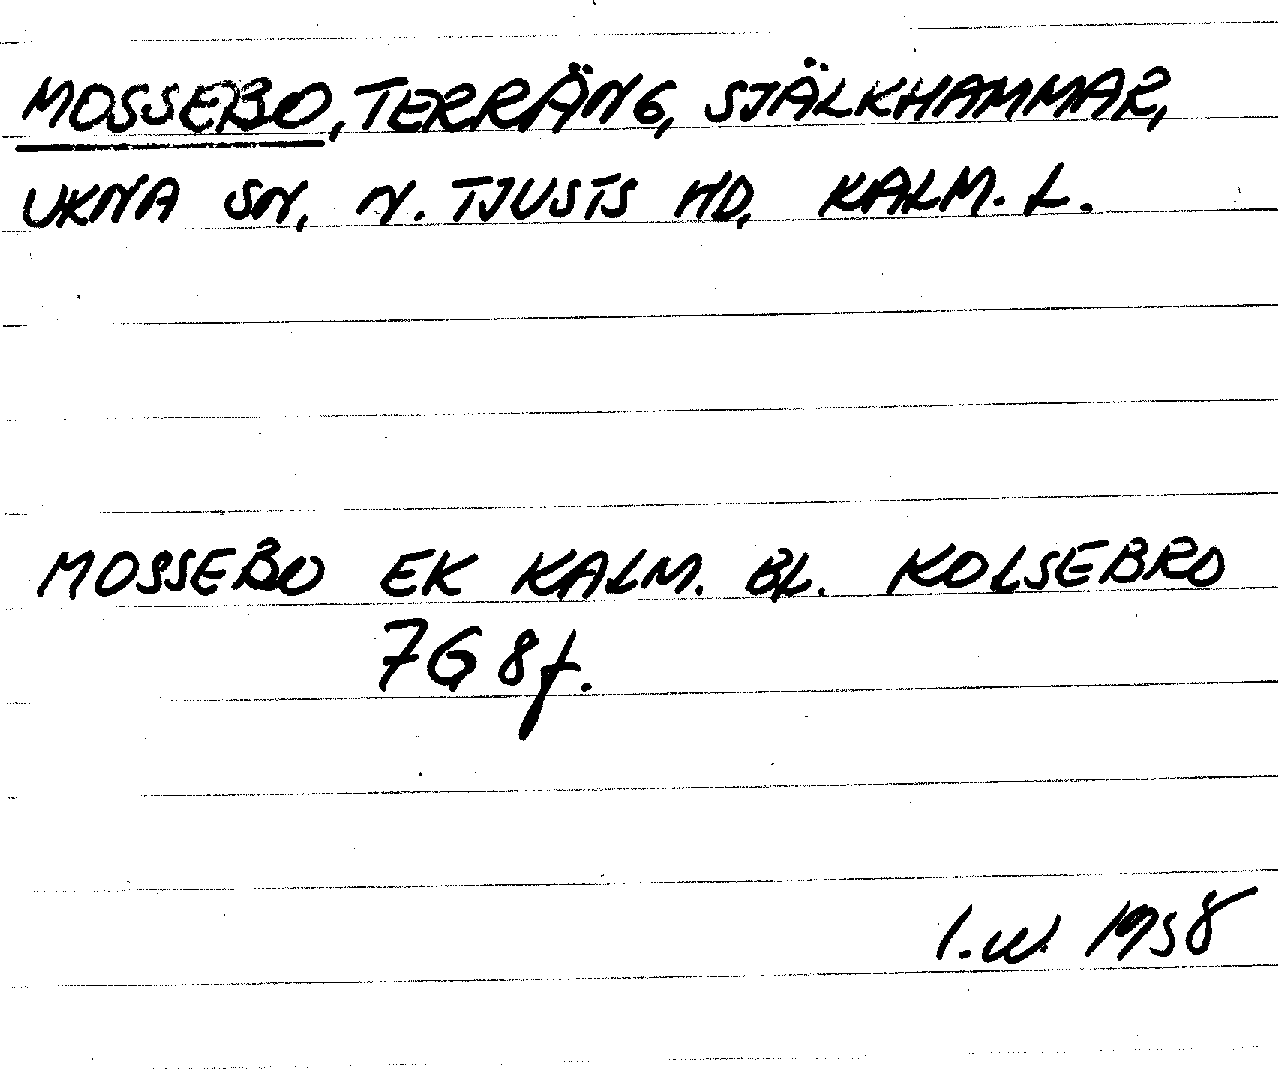 MOSSEBO, TERRÄNG, SJÄLKHAMMAR,
UKNA SN, N. TJUSTS HD, KALM. L.
MOSSEBO EK KALM. BL. KOLSEBRO
7G 8f.
I.W. 1958